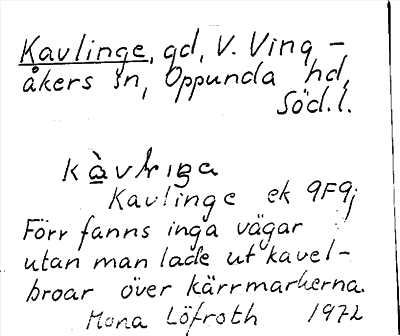 Kavlinge, gd, V. Ving-
åkers sn, Oppunda hd,
Söd.l.
Kavlinge ek 9F9j
Förr fanns inga vägar
utan man lade ut kavel-
broar över kärrmarkerna.
Mona Löfroth 1972